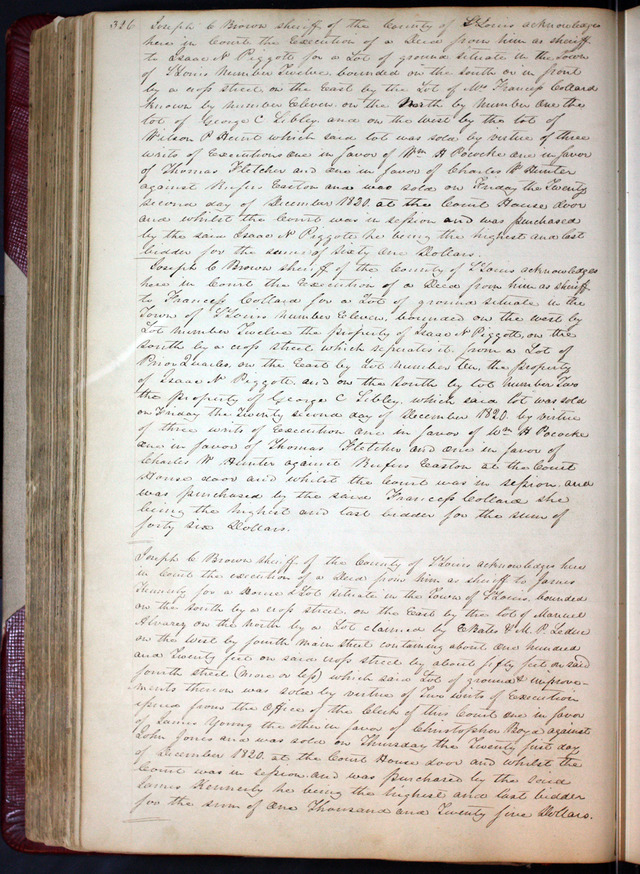 326 Joseph C Brown sheriff of the County of St Louis acknowledges
here in Court the Execution of a Deed from him as sheriff
to Isaac N Piggott for a Lot of ground situate in the Town
of St Louis Number Twelve bounded on the South or in front
by a cross street on the East by the Lot of Mrs Francess Collard
known by number Eleven on the North by Number One the
lot of George C Sibley and on the west by the lot of
Wilson P Hunt which said lot was sold by virtue of three
writs of Executions one in favor of Wm H Pococke one in favor
of Thomas Fletcher and one in favor of Charles W Hunter
against Rufus Easton and was sold on Friday the Twenty
second day of December 1820 at the Court House door
and whilst the Court was in session and was purchased
by the said Isaac N Piggott he being the highest and last
bidder for the sum of sixty one Dollars.
Joseph C Brown sheriff of the County of St Louis acknowledges
here in Court the Execution of a Deed from him as sheriff
to Francess Collard for a Lot of ground situate in the
Town of St Louis Number Eleven, bounded on the west by
Lot Number Twelve the property of Isaac N Piggott, on the
South by a cross street which seperates it from a Lot of
Prior Quarles, on the East by Lot number Ten the property
of Isaac N Piggott, and on the North by lot number Two
the property of George C Sibley, which said lot was sold
on Friday the Twenty second day of December 1820 by virtue
of three writs of Execution one in favor of Wm H Pococke
one in favor of Thomas Fletcher and One in favor of
Charles W Hunter against Rufus Easton at the Court
House door and whilst the Court was in session and
was purchased by the said Francess Collard she
being the highest and last bidder for the sum of
forty six Dollars.
Joseph C Brown sheriff of the County of St Louis acknowledges here
in Court the execution of a Deed from him as sheriff to James
Kennerly for a House & Lot situate in the Town of St Louis, bounded
on the South by a cross street, on the East by the lot of Manuel
Alvarez on the North by a Lot claimed by Bates & M. P. Leduc
on the west by fourth Main street containing about one hundred
and Twenty feet on said cross street by about fifty feet on said
fourth street (more or less) which said Lot of ground & improve-
ments thereon was sold by virtue of Two writs of Execution
issued from the Office of the Clerk of this Court one in favor
of James Young the other in favor of Christopher against
John Jones and was sold on Thursday the Twenty first day
of December 1820. at the Court House door and whilst the
Court was in session and was purchased by the said
James Kennerly he being the highest and last bidder
for the sum of One Thousand and Twenty five Dollars.